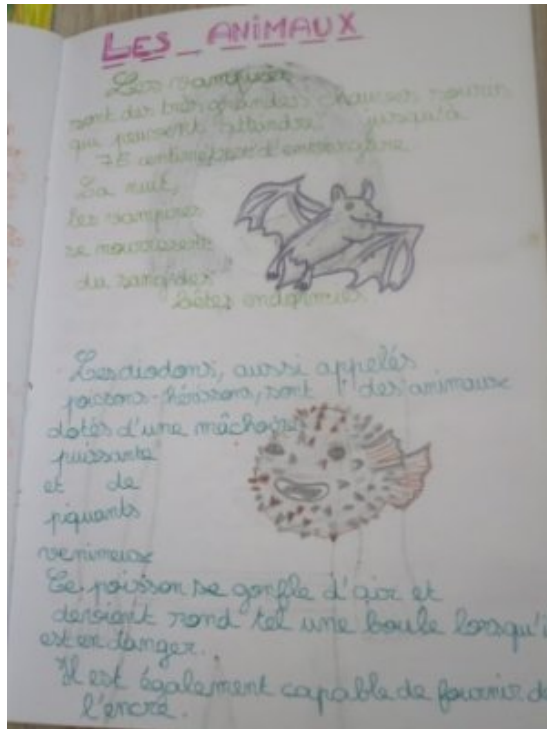 LES ANIMAUX
Les vampires
sont des très grandes chauves souris
qui peuvent attendre jusqu'à
75 centimètres d'envergure.
La nuit,
les vampires
se nourrissent
du sang des
bêtes endormies
Les diodons, aussi appelés
poissons-hérissons, sont des animaux
dotés d'une mâchoire
puissante
et de
piquants
venimeux
Ce poisson se gonfle d'air et
devient rond tel une boule lorsqu'i
est en danger.
Il est également capable de fournir de
l'encre.